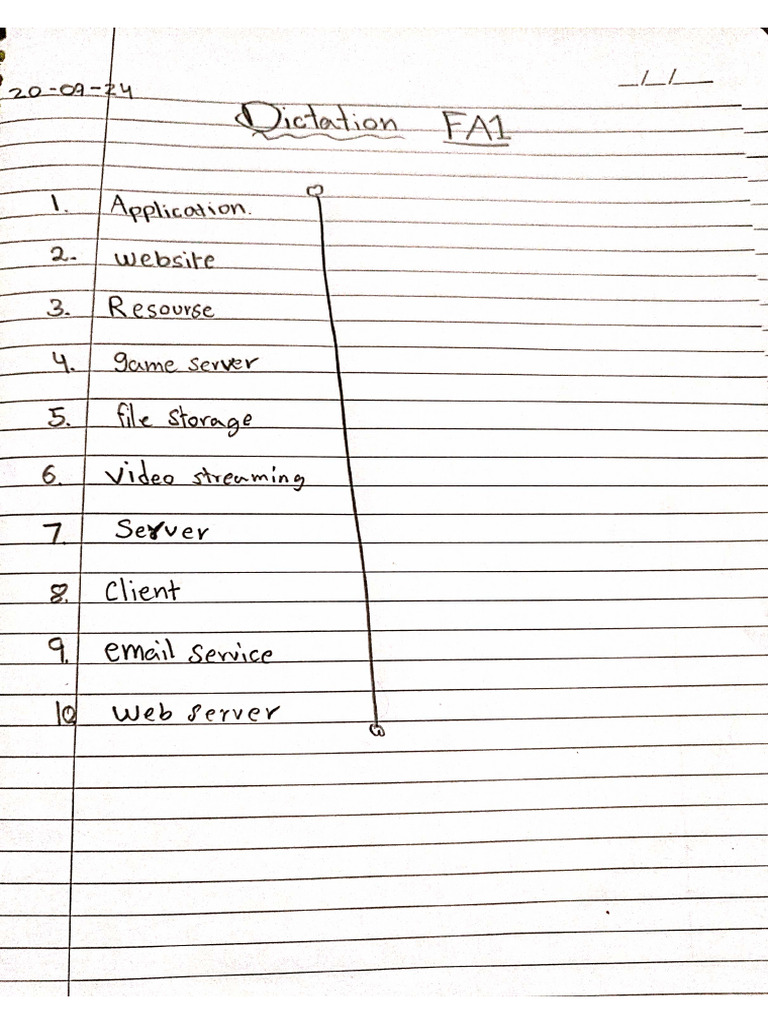 _/_/__
20-09-24
Dictation FA1
1. Application.
2. website
3. Resourse
4. game server
5. file storage
6. Video streaming
7. Server
8. Client
9. email service
10 Web server